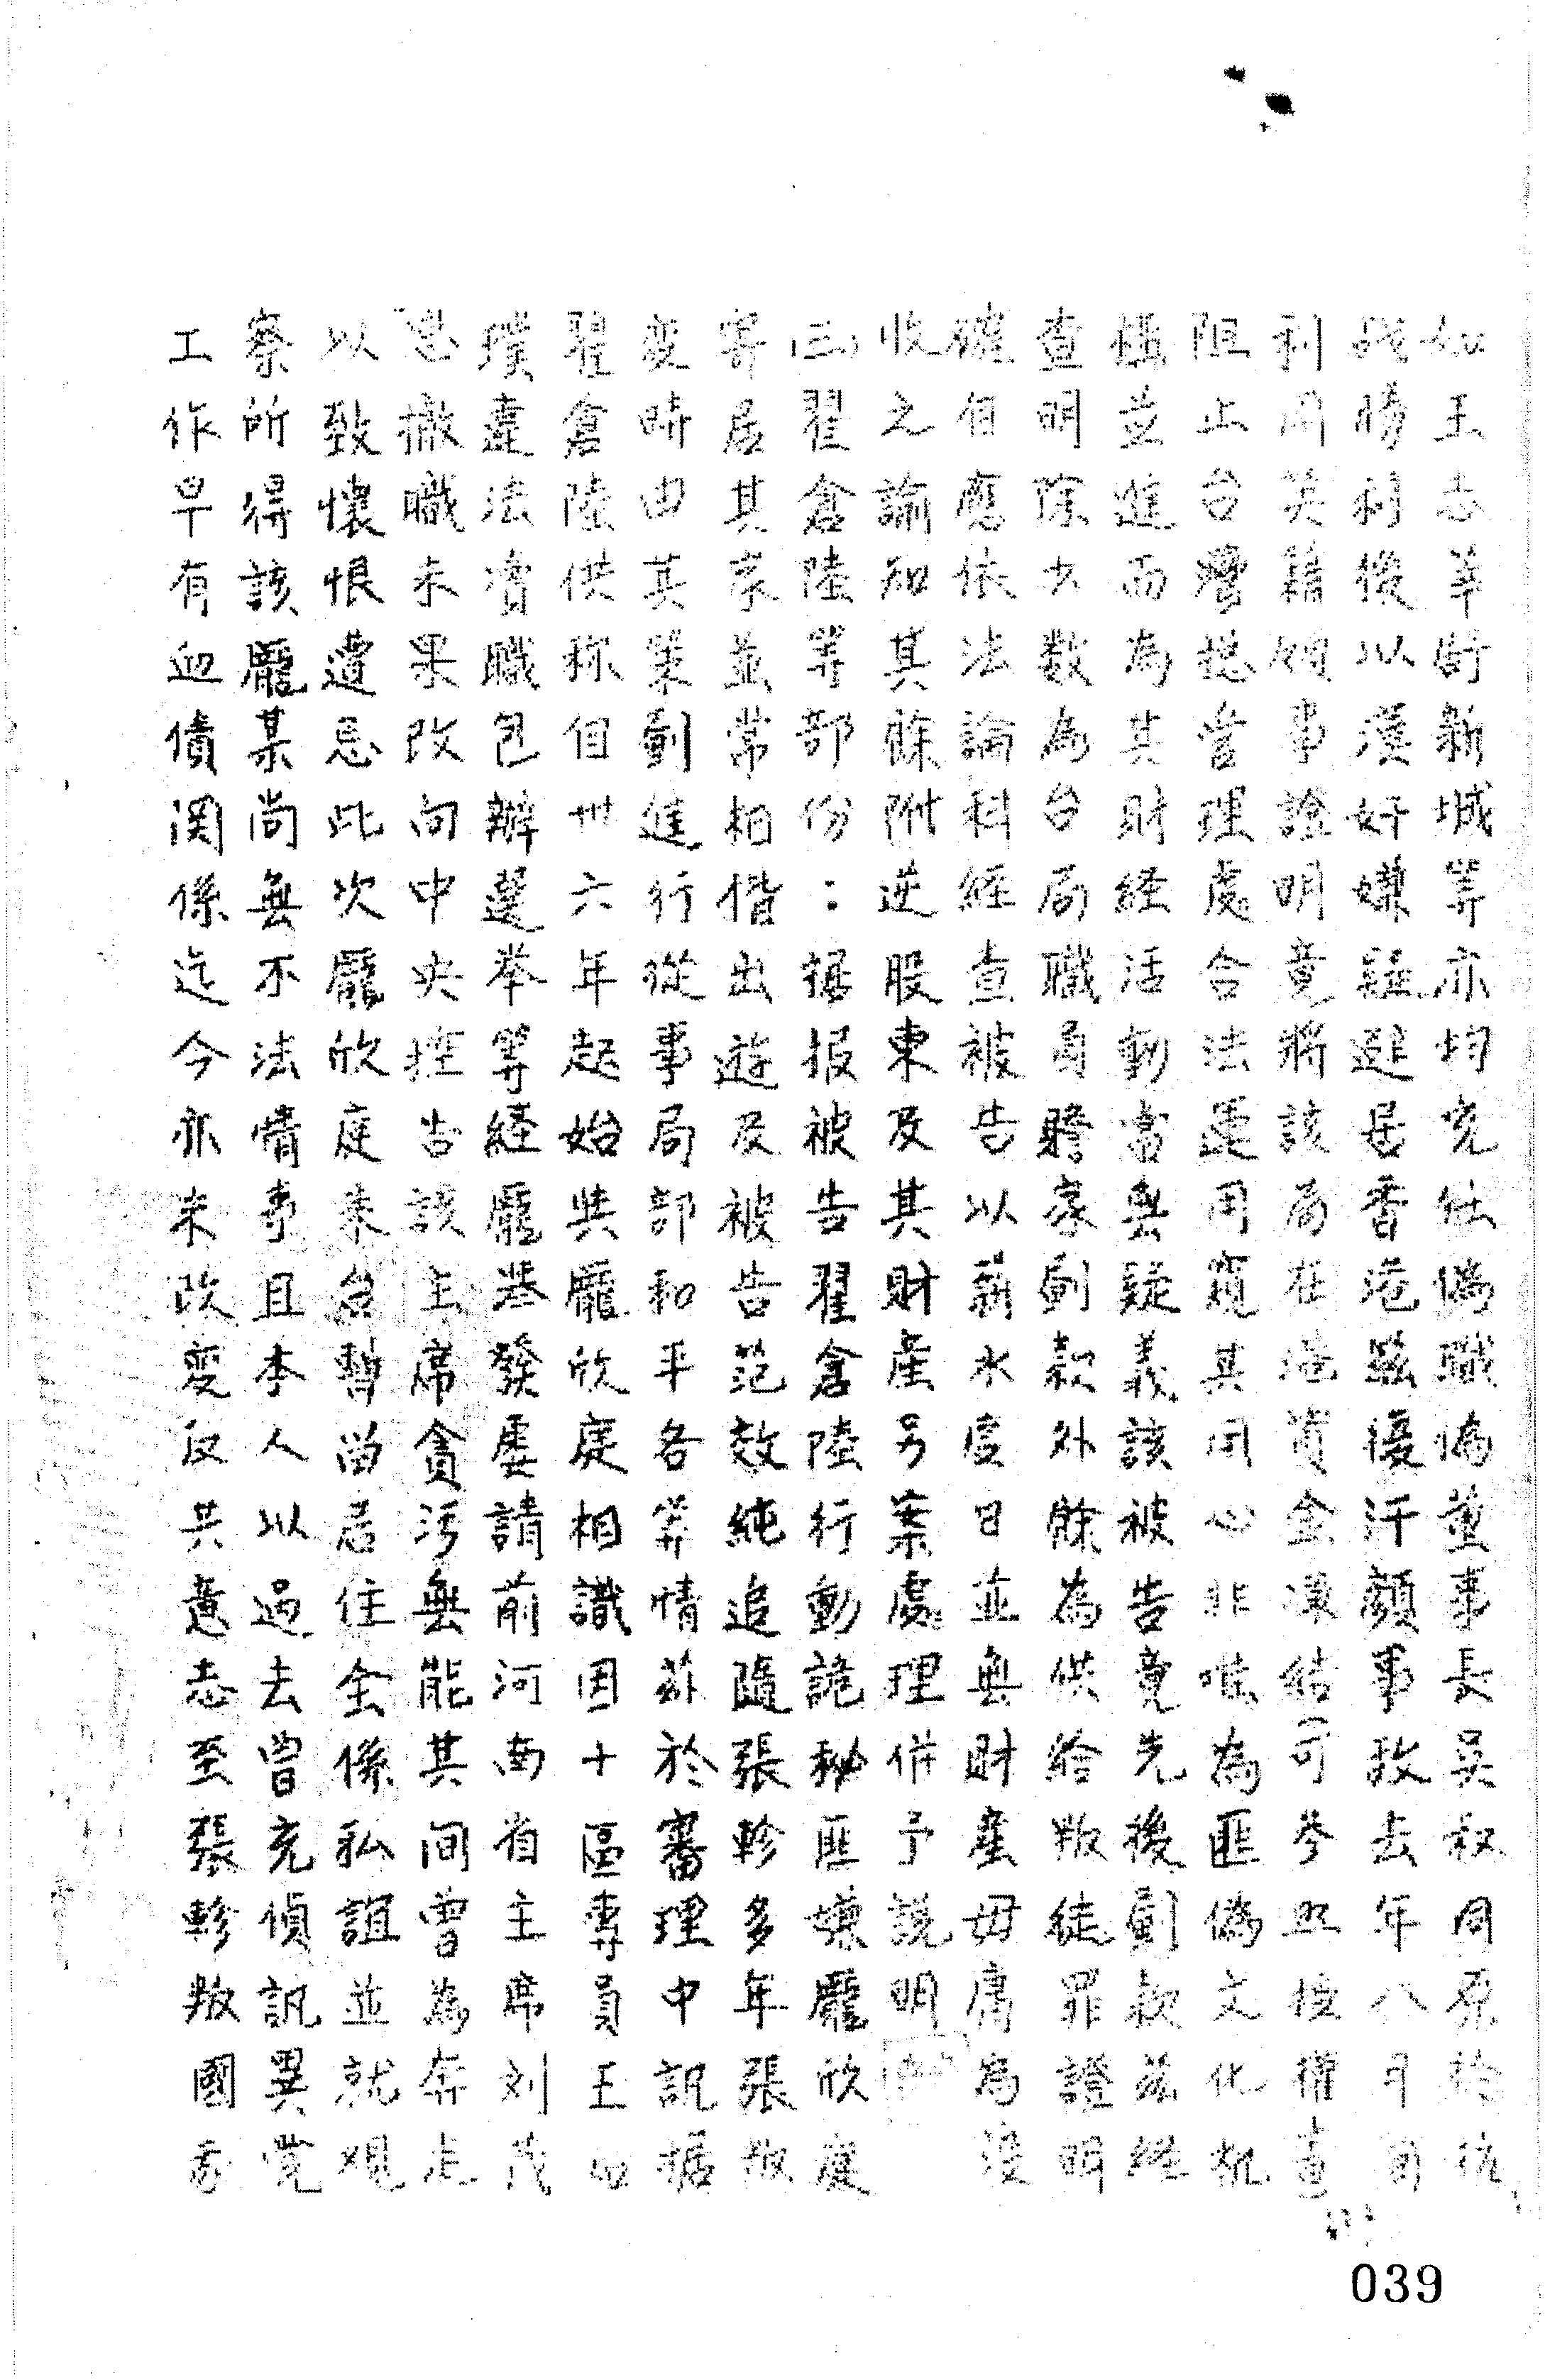 如王志莘時新城等亦均充任偽職偽董事長吳叔同原於抗
戰勝利後以漢奸嫌疑避居香港茲優汗顏事政去年八月間
利用英籍姻事證明竟將該局在港資金凍結(可參照檢權查)
阻止台灣總管理處合法運用窺其用心非唯為匪偽文化機
構並進而為其財經活動當無疑義該被告竟先後劃款茲經
查明除少數為台局職員贍家劃款外餘為供給叛徒罪證明
確但應依法論科經查被告以薪水度日並無財產毋庸為沒
收之諭知其餘附逆股東及其財產另案處理併予說明
(三)翟倉陸等部份：據報被告翟倉陸行動詭秘匪嫌龐欣庭
寄居其家並常相偕出遊及被告范效純追隨張軫多年張叛
變時由其策劃進行從事局部和平各等情茲於審理中訊據
翟倉陸供稱但卅六年起始與龐欣庭相識因十區專員王
璞違法瀆職包辦選举等經龐甚發屢請前河南省主席刘茂
恩撤職未果改向中央控告該主席貪污無能其间曾為奔走
以致懷恨遭忌此次龐欣庭来台暫留居住全係私誼並就觀
察所得該龐某尚無不法情事且本人以過去曾充偵訊異黨
工作早有血債関係迄今亦未改变反共意志至張軫叛國系
039